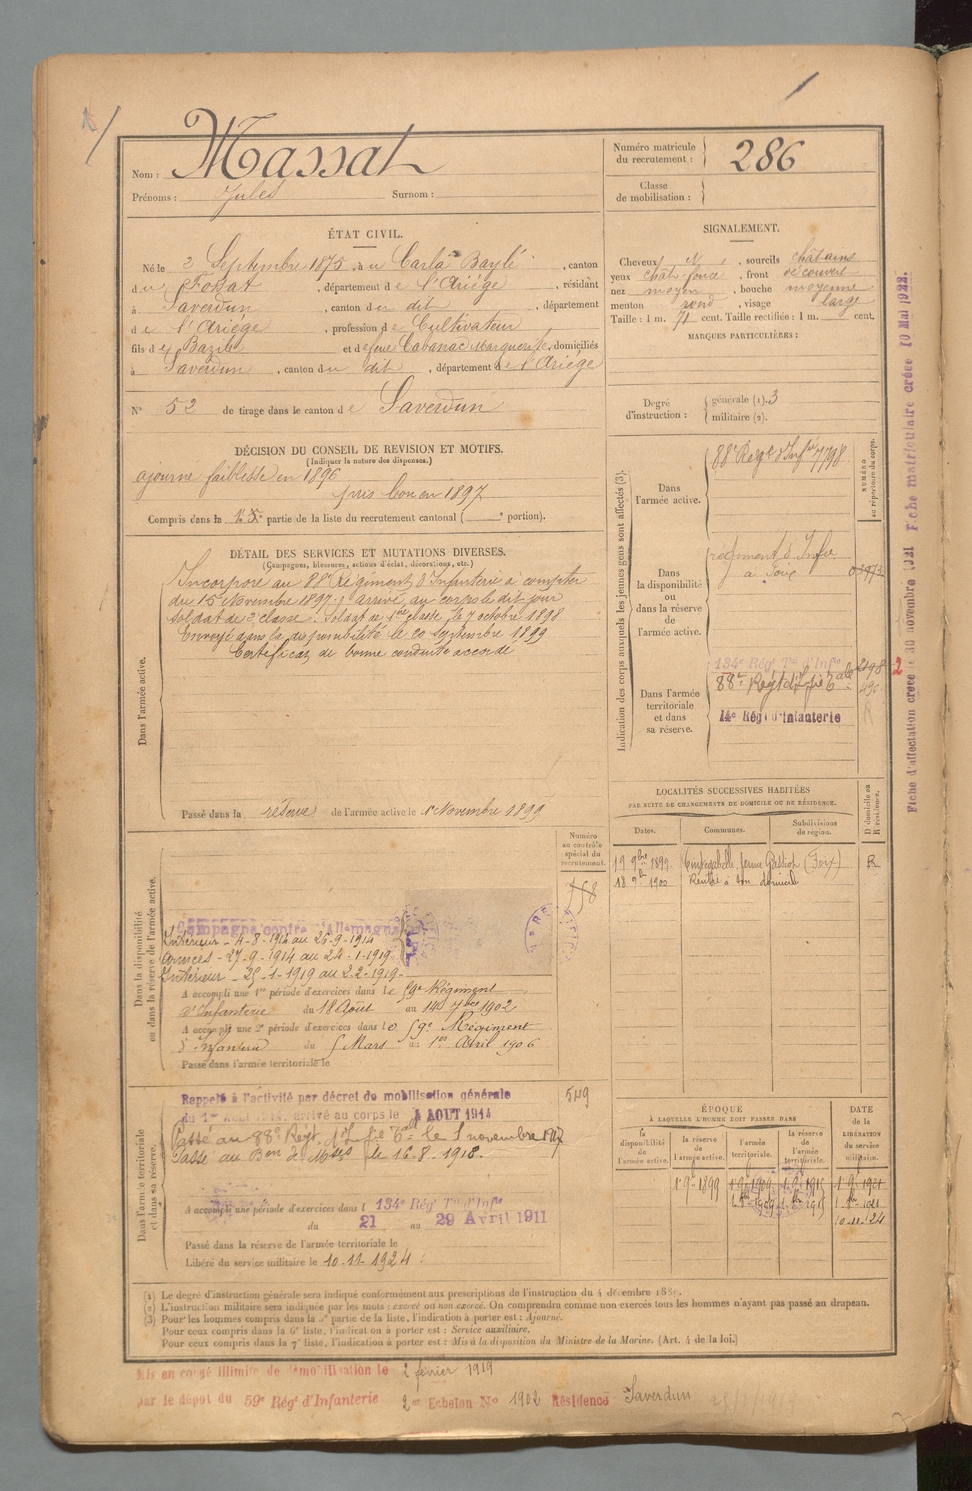 Nom : Massat
Prénoms : Jules Surnom :
Numéro matricule
du recrutement : 286
Classe
de mobilisation :
ÉTAT CIVIL.
Né le 2 Septembre 1875, à u Carla Baylé, canton
d u Fossat, département d e l'Ariége, résidant
à Saverdun, canton d u dit, département
d e l'Ariége, profession d e Cultivateur
fils d e Bazile et d e feue Cabanac Marguerite, domiciliés
à Saverdun, canton d u dit, département d e l'Ariége
N° 52 de tirage dans le canton d e Saverdun
SIGNALEMENT.
Cheveux N, sourcils châtains
yeux chât. foncé, front découvert
nez moyen, bouche moyenne
menton rond, visage large
Taille : 1 m. 71 cent. Taille rectifiée : 1 m. cent.
MARQUES PARTICULIÈRES :
Degré
d'instruction :
générale (1). 3
militaire (2).
DÉCISION DU CONSEIL DE REVISION ET MOTIFS.
(Indiquer la nature des dispenses.)
ajourné faiblesse en 1896
pris bon en 1897
Compris dans la partie de la liste du recrutement cantonal ( portion).
DÉTAIL DES SERVICES ET MUTATIONS DIVERSES.
(Campagnes, blessures, actions d'éclat, décorations, etc.)
Dans l'armée active.
Incorporé au 88e Régiment d'Infanterie à compter
du 15 Novembre 1897. arrivé au corps le dit jour
soldat de 2e classe. Soldat de 1ère classe le 7 octobre 1898
Envoyé dans la disponibilité le 20 Septembre 1899
Certificat de bonne conduite accordé
Passé dans la réserve de l'armée active le 1 Novembre 1899
Indication des corps auxquels les jeunes gens sont affectés (3).
NUMÉRO
au répertoire du corps.
Dans
l'armée active.
88e Regt d'Infie 7798
Dans
la disponibilité
ou
dans la réserve
de
l'armée active.
régiment d'Infie
à Foix
Dans l'armée
territoriale
et dans
sa réserve.
134e Rég. Tal d'Infie
88e Régt d'Infie 6
14e Rég. d'Infanterie
LOCALITÉS SUCCESSIVES HABITÉES
PAR SUITE DE CHANGEMENTS DE DOMICILE OU DE RÉSIDENCE.
D domicile ou
R résidence.
Dates.
Communes.
Subdivisions
de région.
19 9bre 1899 (Foix) R
18 9bre 1900 Rentré à son domicile
Dans la disponibilité
ou dans la réserve de l'armée active.
Numéro
au contrôle
spécial du
recrutement.
Campagne contre l'Allemagne
Intérieur - 4-8-1914 au 26-9-1914
Armées - 27-9-1914 au 24-1-1919
Intérieur - 25-1-1919 au 2-2-1919
A accompli une 1re période d'exercices dans le 59e Régiment
d'Infanterie du 18 Août au 14 7bre 1902
A accompli une 2e période d'exercices dans le 59e Régiment
d'Infanterie du 5 Mars au 1er Avril 1906
Passé dans l'armée territoriale le
Dans l'armée territoriale
et dans sa réserve.
549
Rappelé à l'activité par décret de mobilisation générale
du 1er Août 1914, arrivé au corps le 4 AOUT 1914
Passé au 88e Regt. d'Infie le 1 novembre 1917
Passé au Bon de le 16.8.1918.
A accompli une période d'exercices dans l 134e Rég. Tal d'Infie
du 21 au 29 Avril 1911
Passé dans la réserve de l'armée territoriale le
Libéré du service militaire le 10-11-1924
ÉPOQUE
À LAQUELLE L'HOMME DOIT PASSER DANS
DATE
de la
LIBÉRATION
du service
militaire.
la
disponibilité
de l'armée active.
la réserve
de
l'armée active.
l'armée
territoriale.
la réserve
de
l'armée
territoriale.
1-9-1899
10-11-24
(1) Le degré d'instruction générale sera indiqué conformément aux prescriptions de l'instruction du 4 décembre 1889.
(2) L'instruction militaire sera indiquée par les mots : exercé ou non exercé. On comprendra comme non exercés tous les hommes n'ayant pas passé au drapeau.
(3) Pour les hommes compris dans la 5e partie de la liste, l'indication à porter est : Ajourné.
Pour ceux compris dans la 6e liste, l'indication à porter est : Service auxiliaire.
Pour ceux compris dans la 7e liste, l'indication à porter est : Mis à la disposition du Ministre de la Marine. (Art. 4 de la loi.)
Mis en congé illimité de démobilisation le 2 février 1919
par le dépôt du 59e Rég. d'Infanterie 2e Echelon No 1902 Résidence Saverdun
Fiche d'affectation créée le 30 novembre 1921 Fiche matriculaire créée 10 Mai 1922.